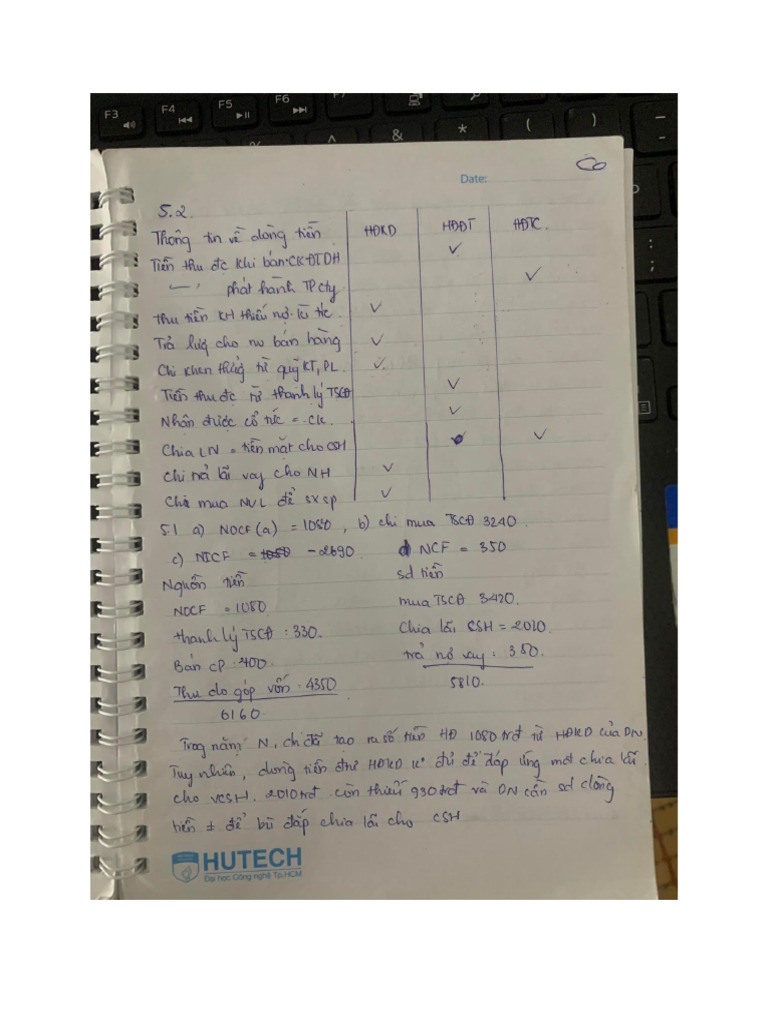 F3 F4 F5 F6 F7
& * ( )
Date:
5.2.
Thông tin về dòng tiền HĐKD HĐĐT HĐTC.
Tiền thu đc khi bán CK ĐTDH ✓
—,, phát hành TP cty ✓
Thu tiền KH thiếu nợ kì tíc. ✓
Trả lươg cho nv bán hàng ✓
Chi khen thưởg từ quỹ KT, PL. ✓
Tiền thu đc từ thanh lý TSCĐ ✓
Nhân được cổ tức = CK. ✓
Chia LN = tiền mặt cho CSH ✓
Chi trả lãi vay cho NH ✓
Chi mua NVL để sx sp ✓
5.1 a) NOCF (a) = 1080, b) chi mua TSCĐ 3240.
c) NICF = -2690 d) NCF = 350
Nguồn tiền sd tiền
NOCF = 1080. mua TSCĐ 3420.
thanh lý TSCĐ : 330. Chia lãi CSH = 2010.
Bán CP : 400 trả nợ vay : 380.
Thu do góp vốn : 4350 5810.
6160.
Trog năm N, chỉ đã tạo ra số tiền HĐ 1080 trđ từ HĐKD của DN.
Tuy nhiên, dòng tiền HĐKD ko đủ để đáp ứng mot chia lãi
cho VCSH. 2010 trđ còn thiếu 930 trđ và DN cần sd dòng
tiền ± để bù đắp chia lãi cho CSH
HUTECH
Đại học Công nghệ Tp.HCM